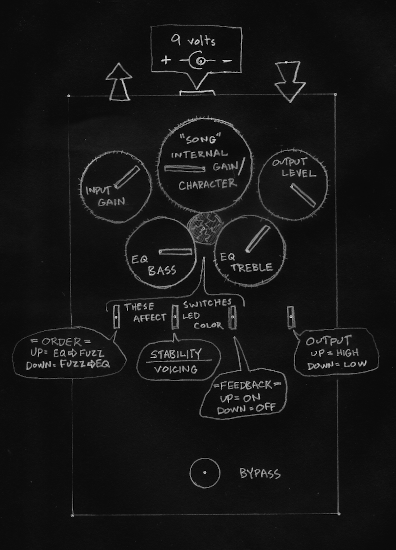 9 volts
+ -
"SONG"
INTERNAL
GAIN/
CHARACTER
INPUT
GAIN
OUTPUT
LEVEL
EQ
BASS
EQ
TREBLE
THESE SWITCHES
AFFECT LED
COLOR
=ORDER=
UP= EQ⇨FUZZ
DOWN= FUZZ⇨EQ
STABILITY/
VOICING
=FEEDBACK=
UP=ON
DOWN=OFF
OUTPUT
UP=HIGH
DOWN=LOW
BYPASS